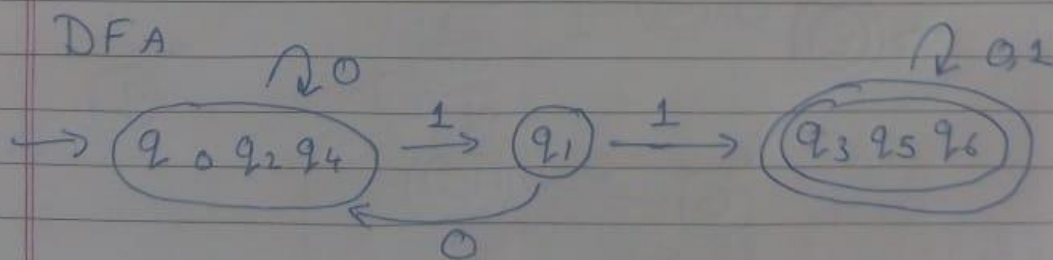 DFA
0 0,1
→ q0 q2 q4 1→ q1 1→ q3 q5 q6
0